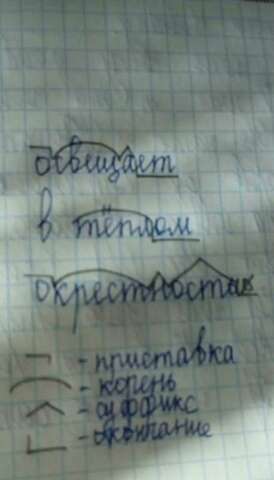 освещает
в тёплом
окрестностях
- приставка
- корень
- суффикс
- окончание